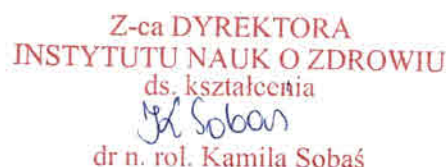 Z-ca DYREKTORA
INSTYTUTU NAUK O ZDROWIU
ds. kształcenia
K Sobaś
dr n. rol. Kamila Sobaś